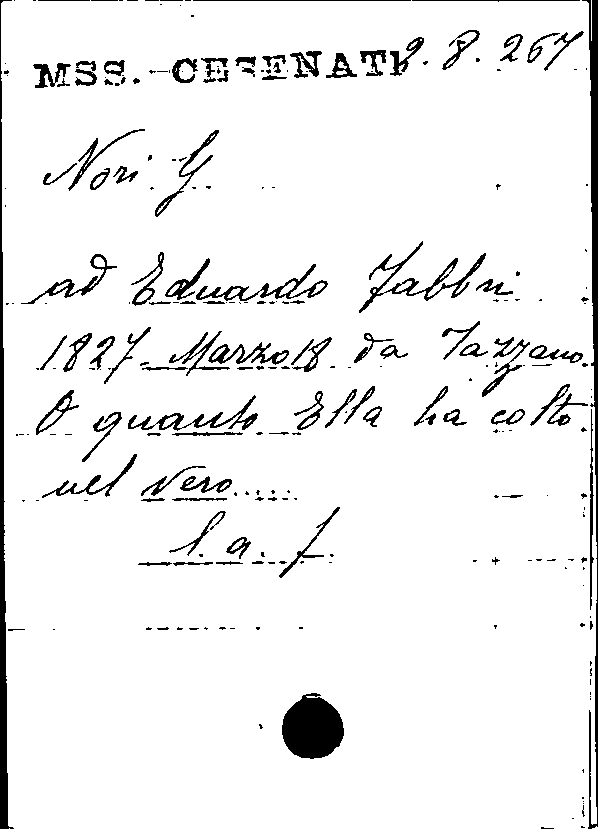 MSS. CESENATI 2.8.267
Nori G.
ad Eduardo Fabbri
1827 Marzo 18 da
O quanto Ella ha colto
nel vero.....
l. a. f.